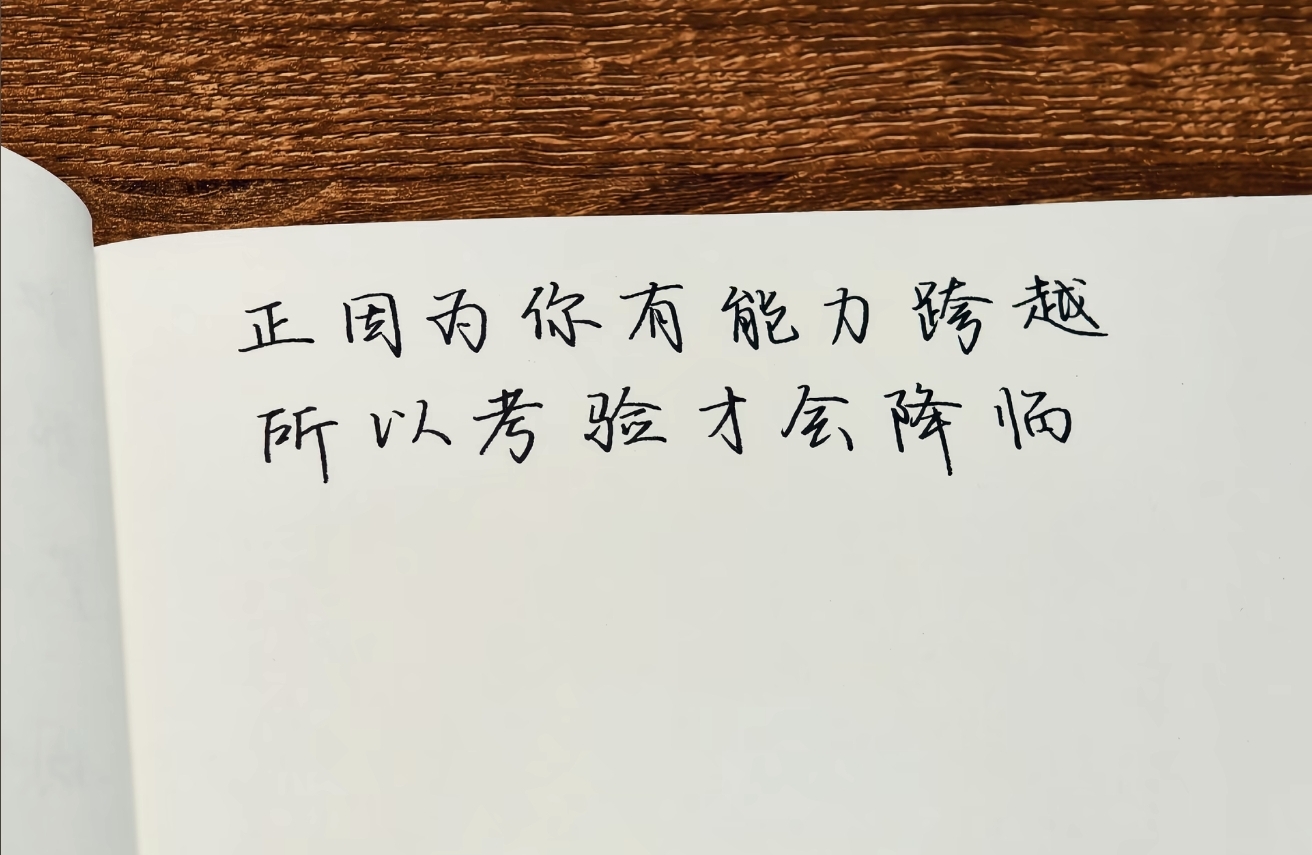 正因为你有能力跨越
所以考验才会降临